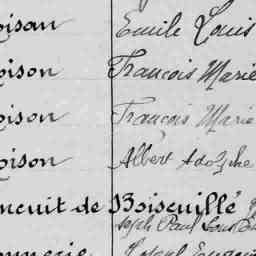 oison Emile Louis
oison François Marie
oison François Marie
oison Albert Adolphe
ncuit de Boiscuillé
Joseph Paul Louis
onnerie Joseph